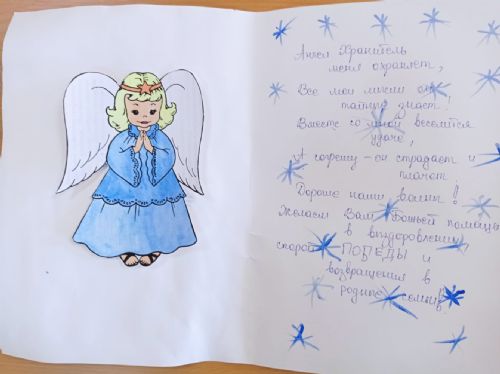 Ангел Хранитель
меня охраняет,
Все мои мысли он
тайные знает!
Вместе со мной веселится
удаче,
А согрешу - он страдает и
плачет
Дорогие наши воины!!
Желаем Вам Божьей помощи
в выздоровлении,
скорой ПОБЕДЫ и
возвращения в
родные семьи.